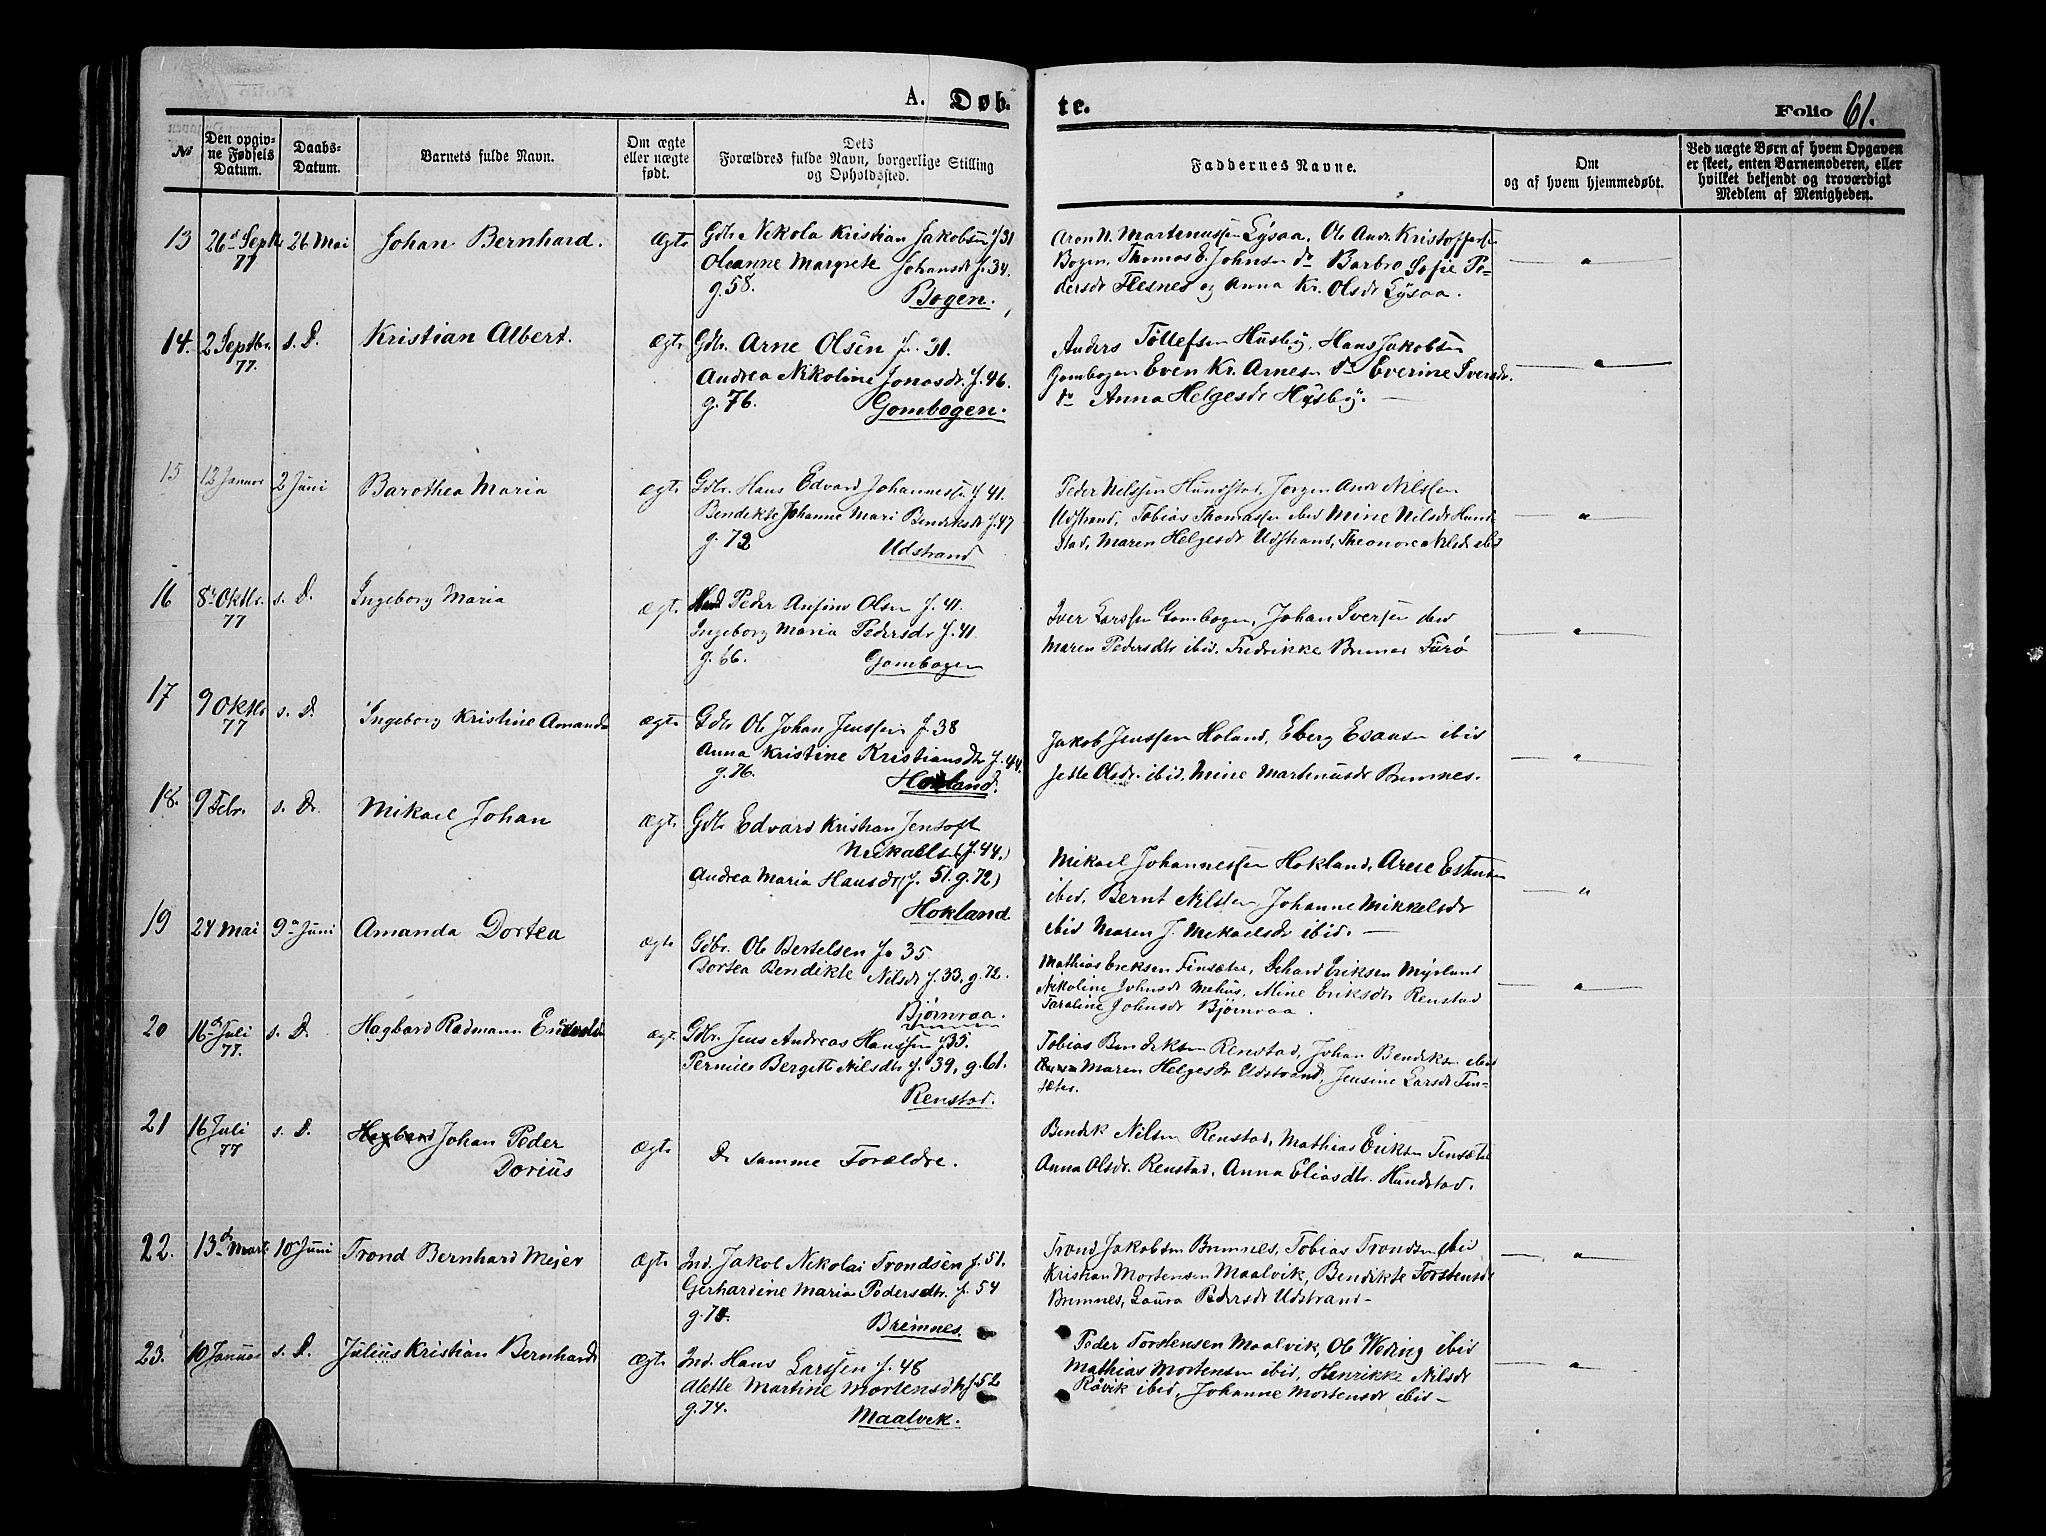 A. Døb- te. Folio 61.
№
Den opgivne Fødsels Datum.
Daabs-Datum.
Barnets fulde Navn.
Om ægte eller uægte født.
Dets Forældres fulde Navn, borgerlige Stilling og Opholdssted.
Faddernes Navne.
Om og af hvem hjemmedøbt.
Ved uægte Børn af hvem Opgaven er skeet, enten Barnemoderen, eller hvilket bekjendt og troværdigt Medlem af Menigheden.
13 26d Septb 77 26 Mai Johan Bernhard. Ægte
Gdbr Nikolai Kristian Jakobsen f. 31
Oleanne Margrete Johansdr f. 34.
g. 58. Bogen.
Aron N. Martinussen Lysaa, Ole Andr. Kristoffersen
Bogen, Thomas E. Johnsen do Barbro Sofie Pe-
dersdr Flesnes og Anna Kr. Olsdr Lysaa.
14. 2 Septbr. 77. s. D. Kristian Albert. Ægte
Gdbr Arne Olsen f. 31.
Andrea Nikoline Jonasdr. f. 46.
g. 76. Gombogen.
Anders Tøllefsen Husby, Hans Jakobsen
Gombogen Even Kr. Arnesen do Everine Iversdr.
do Anna Helgesdr Husby. —
15 12 Januar 2 Juni Barothea Maria ægte
Gdbr. Hans Edvard Johannessen f. 41.
Bendikte Johanne Mari Bendiksdr f. 47
g. 72 Udstrand
Peder Nilssen Hundstad, Jørgen Andr Nilssen
Udstrand, Tobias Thomassen ibid Mine Nilsdr Hund-
stad, Maren Helgesdr Udstrand, Theanore Nilsdr ibid
16 8de Oktbr. 77 s. D. Ingeborg Maria ægte
Ind Peder Anfind Olsen f. 41.
Ingeborg Maria Pedersdr f. 41
g. 66. Gombogen
Iver Larssen Gombogen, Johan Iversen ibid
Maren Pedersdtr ibid. Fredrikke Bremer Furø
17 9 Oktbr 77 s. D. Ingeborg Kristine Amanda ægte
Gdbr Ole Johan Jenssen f. 38
Anna Kristine Kristiansdtr f. 44.
g. 76. Hokland.
Jakob Jenssen Holand, Eberg Esausen ibid
Jette Olsdr. ibid. Mine Martinusdr Bremnes.
18. 9 Febr. s. D. Mikael Johan ægte
Gdbr Edvard Kristian Jentoft
Mikaelsen (f. 44.)
Andrea Maria Hansdr (f. 51. g. 72)
Hokland
Mikael Johannessen Hokland, Arne Estensen
ibid, Bernt Nilsen, Johanne Mikkelsdr
ibid Maren J. Mikaelsdr ibid. —
19 24 Mai 9de Juni Amanda Dortea ægte
Gdbr. Ole Bertelsen f. 35
Dortea Bendikte Nilsdr f. 33. g. 72.
Bjørnraa.
Mathias Eriksen Finsæter, Edvard Eriksen Myrland
Nikoline Johnsdr Mehus, Mine Eriksdtr Renstad
Taraline Johnsdr Bjørnraa.
20 16d Juli 77. s. D. Hagbard Radmann ægte
Gdbr. Jens Andreas Hanssen f. 35.
Pernille Bergitte Nilsdtr f. 39, g. 61.
Renstad.
Tobias Bendiksen Renstad, Johan Bendiksen ibid
Maren Helgesdr Udstrand, Jensine Larsdr Fin-
sæter.
21 16 Juli 77 s. D. Hagbard Johan Peder
Dorius ægte
De samme Forældre.
Bendik Nilsen Renstad, Mathias Eriksen Finsæter
Anna Olsdr. Renstad, Anna Eliasdtr. Hundstad.
22. 13d Marts 10de Juni Trond Bernhard Mejer Ægte
Ind. Jakob Nikolai Trondsen f. 51.
Gerhardine Maria Pedersdtr. f. 54
g. 74. Bremnes
Trond Jakobsen Bremnes, Tobias Trondsen ibid
Kristian Mortensen Maalvik, Bendikte Torstensdr
Bremnes, Laura Pedersdr Udstrand —
23. 10 Januar s. D. Julius Kristian Bernhard ægte
Ind. Hans Larssen f. 48
Alette Martine Mortensdtr f. 52
g. 74. Maalvik.
Peder Torstensen Maalvik, Ole Weding ibid
Mathias Mortensen ibid, Henrikke Nilsdr
Røvik ibid, Johanne Mortensdr ibid —